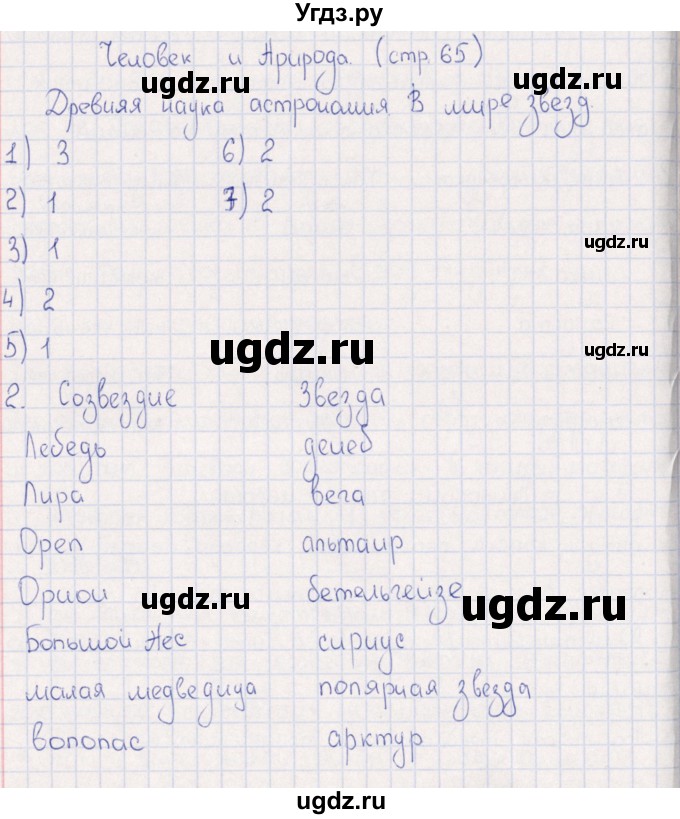 Угдз.ру
Человек и Природа. (стр. 65)
ugdz.ru ugdz.ru
Древняя наука астрономия В мире звезд.
1) 3 6) 2
2) 1 7) 2
3) 1 ugdz.ru
4) 2
5) 1 ugdz.ru ugdz.ru
2. Созвездие Звезда
Лебедь денеб
Лира вега
Орел альтаир
Орион бетельгейзе
ugdz.ru ugdz.ru
Большой Пес сириус
малая медведица полярная звезда
волопас арктур
ugdz.ru
ugdz.ru